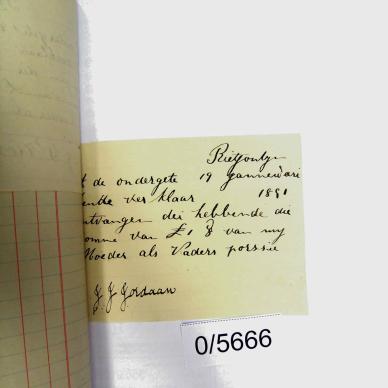 Rietfontyn
t de ondergete 19 Jannewari
ende ver klaar 1891
ntvangen dei hebbende die
omme van £1 8 van my
Moeder als Vaders porssie
J J Jordaan
0/5666